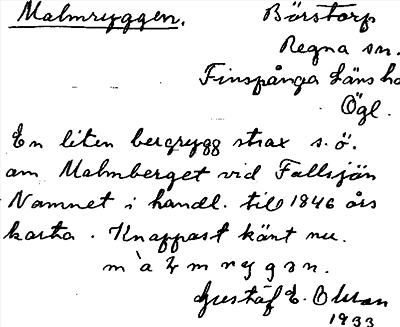 Malmryggen.
Börstorp
Regna sn.
Finspånga Läns ha
Ögl.
En liten bergrygg strax s. ö.
om Malmberget vid Fallsjön
Namnet i handl. till 1846 års
karta. Knappast känt nu.
Gustaf E. Olsson
1933